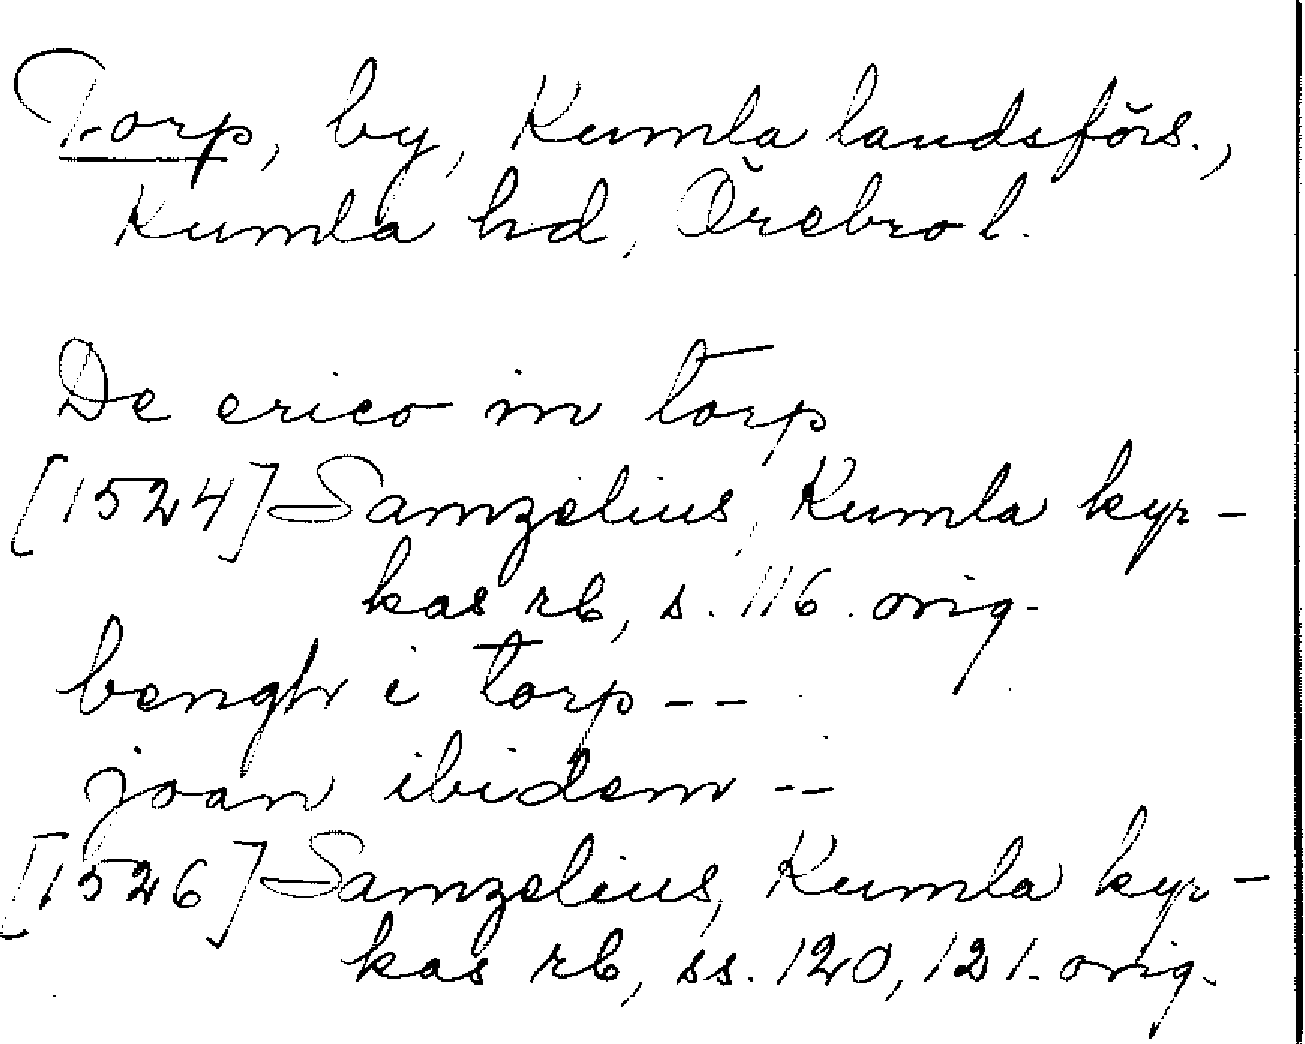 Torp, by, Kumla landsförs.,
Kumla hd, Örebro l.
De erico in torp
[1524] Samzelius, Kumla kyr-
kas rb, s. 116. orig.
benght i torp - -
joan ibidem - -
[1526] Samzelius, Kumla kyr-
kas rb, ss. 120, 121. orig.